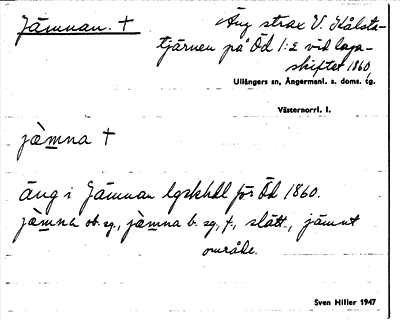 Jämnan. †
Äng strax V. Hålsta-
tjärnen på Öd 1:2 vid laga-
skiftet 1860.
Ullångers sn, Ångermanl. s. doms. tg.
Västernorrl. l.
jämna †
äng i Jämnan lgskhdl för Öd 1860.
jämna ob. sg., jämna b. sg., f., slätt, jämnt
område.
Sven Hiller 1947